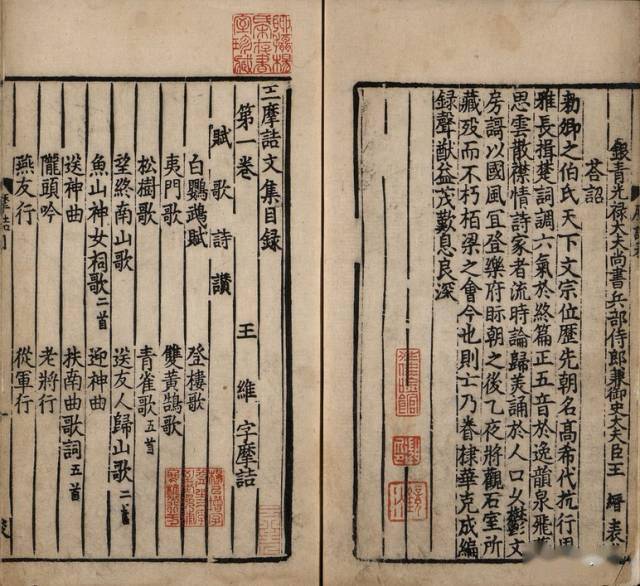 銀青光禄大夫尚書兵部侍郎兼御史大夫臣王 縉 表
荅詔
勑卿之伯氏天下文宗位歴先朝名髙希代抗行周
雅長揖楚詞調六氣於終篇正五音於逸韻泉飛藻
思雲散襟情詩家者流時論歸羙誦於人口乆欝文
房謌以國風宜登樂府眎朝之後乙夜將觀石室所
藏歿而不朽栢梁之會今也則亡乃眷棣華克成編
録聲猷益茂歎息良深
王摩詰文集目録
第一卷 王 維 字摩詰
賦 歌 詩 讚
白鸚鵡賦 登樓歌
夷門歌 雙黃鵠歌
松樹歌 青雀歌五首
望終南山歌 送友人歸山歌二首
魚山神女祠歌二首 迎神曲
送神曲 扶南曲歌詞五首
隴頭吟 老將行
燕友行 從軍行